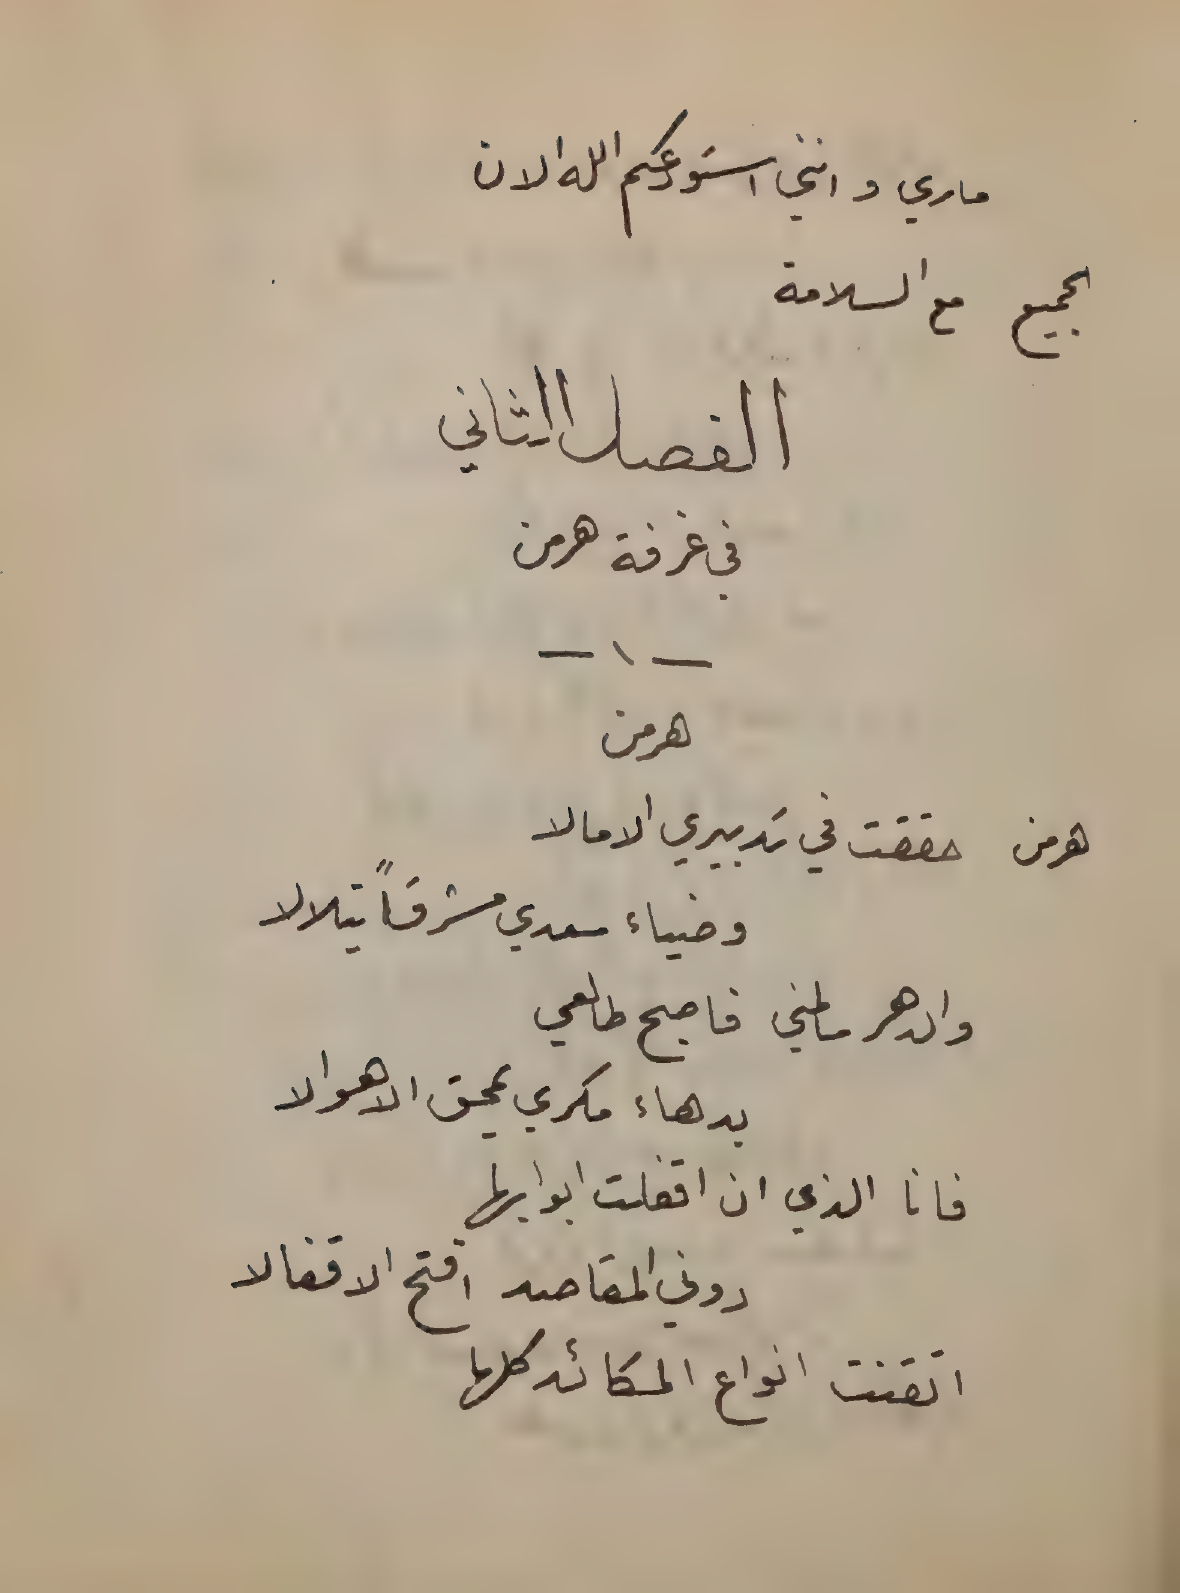 ماري وانني استودعكم الله الان
الجميع مع السلامة
الفصل الثاني
في غرفة هرمن
— ١ —
هرمن
هرمن حققت في تدبيري الامالا
وضياء سعدي مشرقاً يتلالا
والدهر سالمني فاصبح طالعي
بدهاء مكري يمحق الاهوالا
فانا الذي ان اقفلت ابوابها
دوني المقاصد افتح الاقفالا
اتقنت انواع المكائد كلها